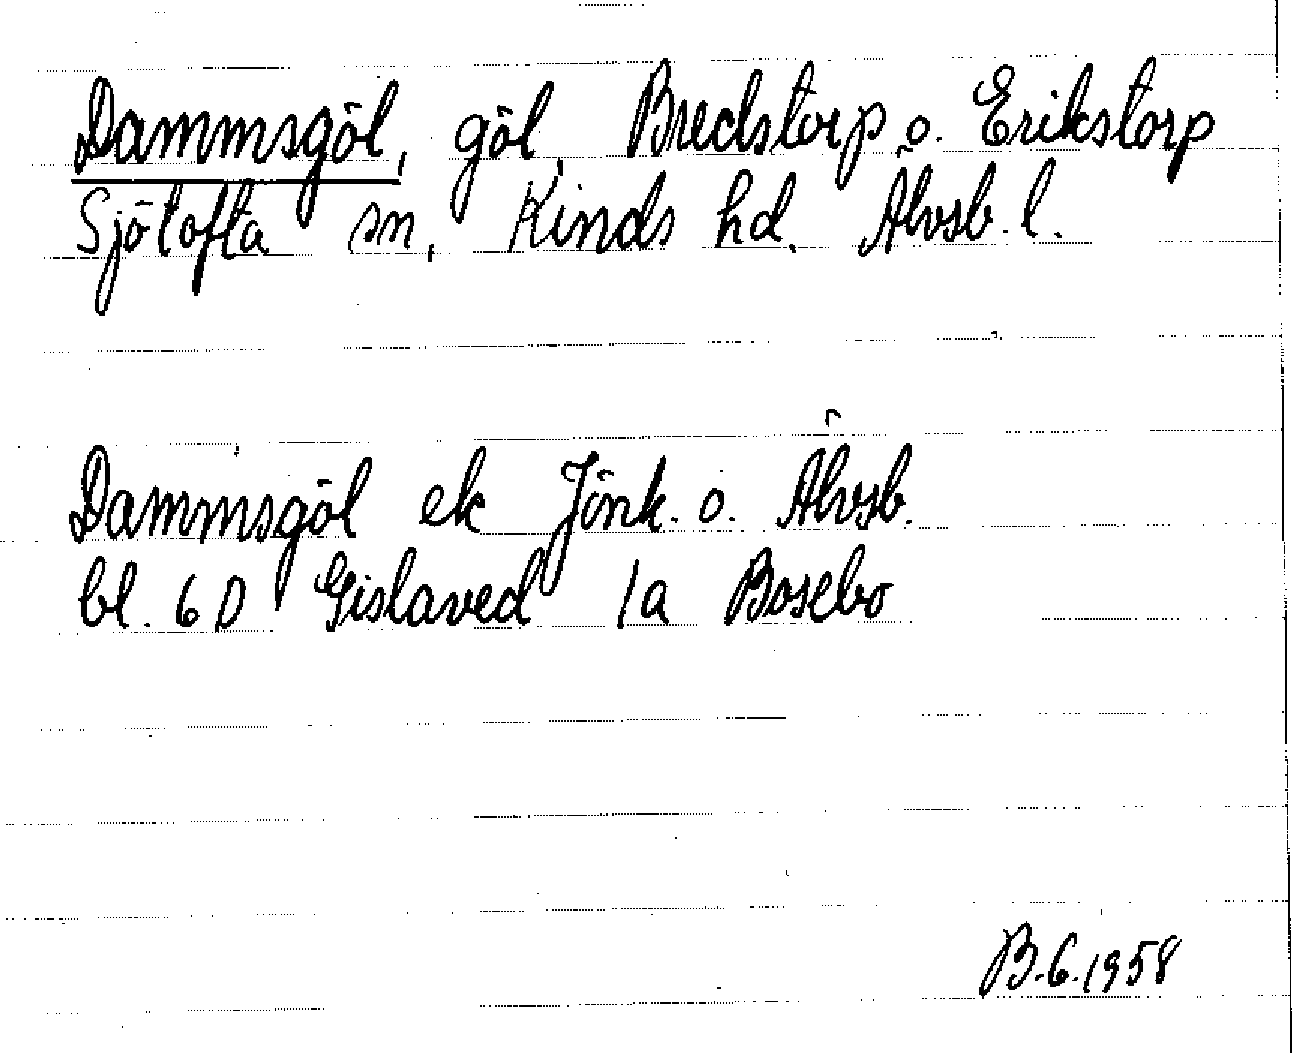 Dammsgöl, göl, Bredstorp o. Erikstorp
Sjötofta sn, Kinds hd. Älvsb. l.
Dammsgöl ek Jönk. o. Älvsb.
bl. 6D Gislaved 1a Bosebo
B.G.1958